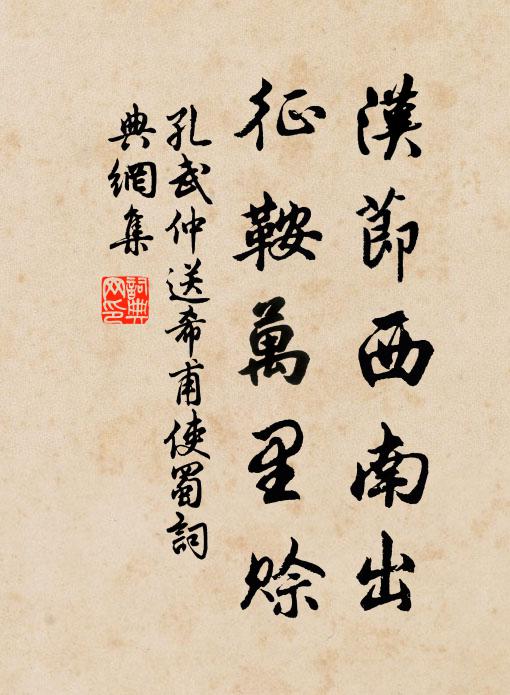 漢節西南出
征鞍萬里賒
孔武仲送希甫使蜀詞
典網集
詞典網印